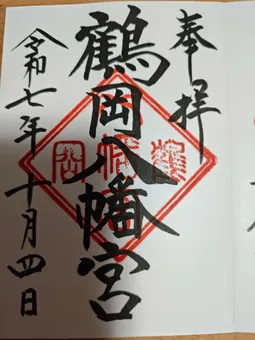 奉拝
鶴岡八幡宮
令和七年十月四日